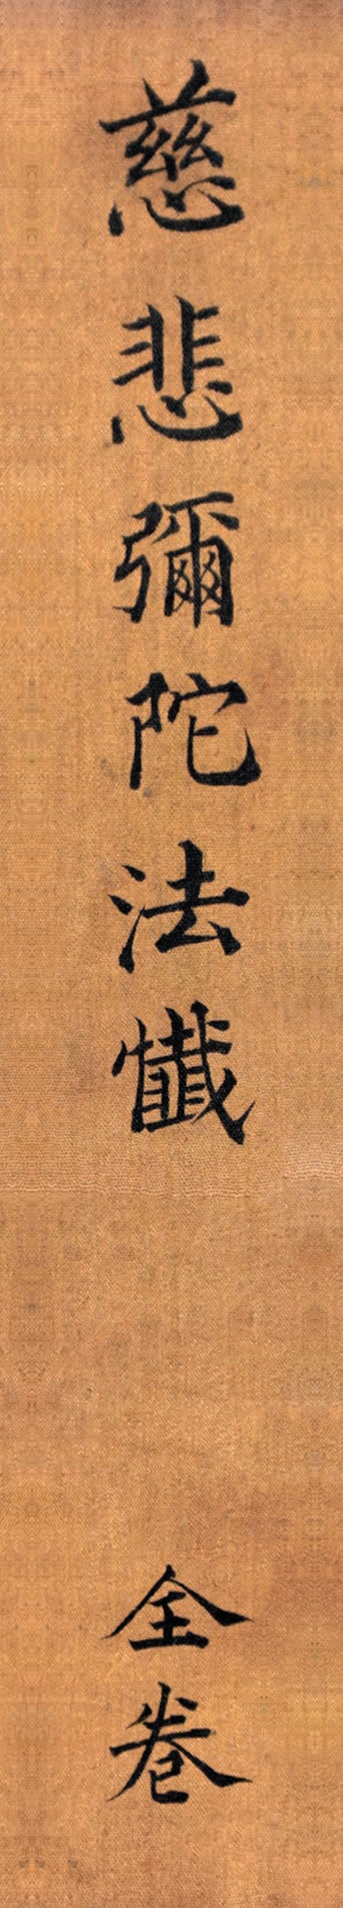 慈悲彌陀法懺 全卷